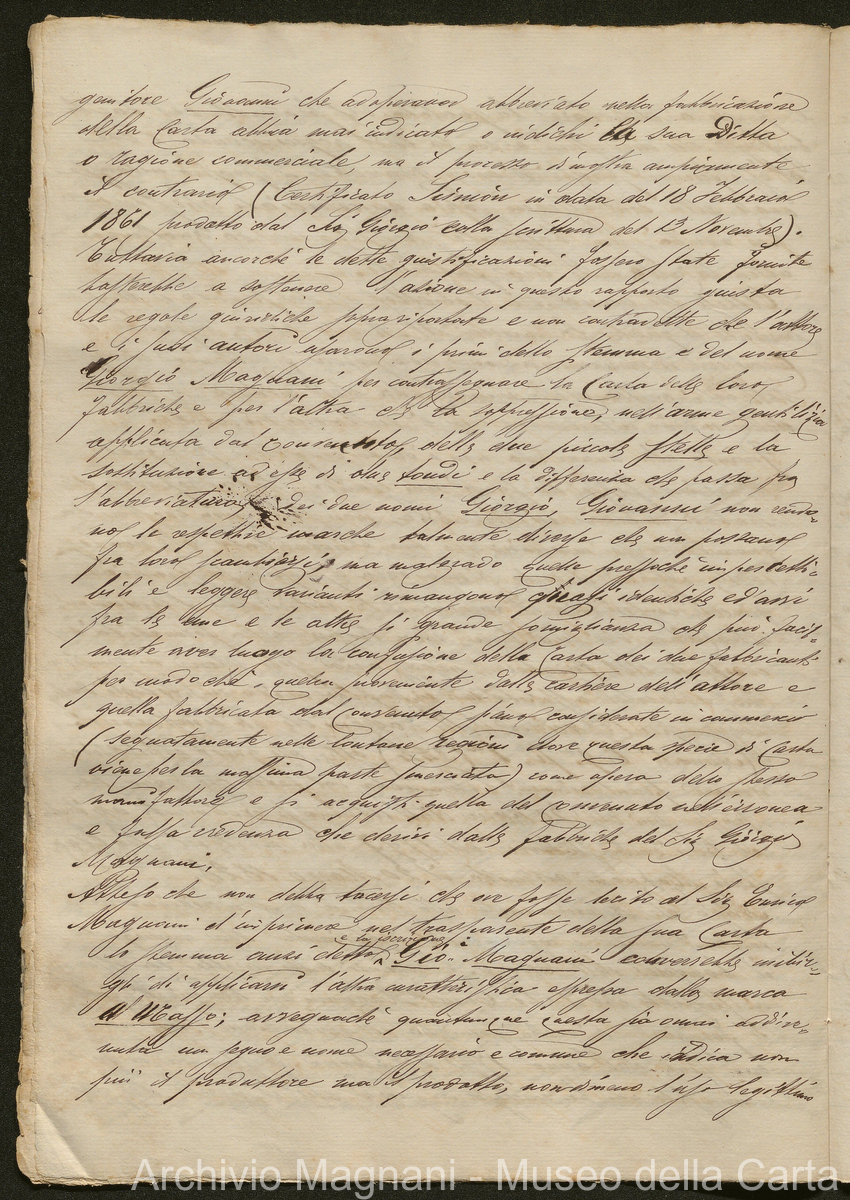 genitore Giovanni che adoperando abbreviato nella fabbricazione
della Carta abbia mai indicato o indichi la sua Ditta
o ragione commerciale, ma il processo dimostra ampiamente
il contrario (Certificato Simon in data del 18 Febbraio
1861 prodotto dal Sig Giorgio colla scrittura del 13 Novembre).
Tuttavia ancorchè le dette giustificazioni fossero state fornite
basterebbe a sostenere l'azione in questo rapporto giusta
le regole giuridiche sopra riportate e non contradette che l'attore
e i suoi autori usarono i primi dello stemma e del nome
Giorgio Magnani per contrassegnare la Carta delle loro
fabbriche e per l'altra che la soppressione, nell'arme gentilizia
applicata dal convenuto, delle due piccole stelle e la
sostituzione ad esse di due tondi e la differenza che passa fra
l'abbreviatura dei due nomi Giorgio, Giovanni non rendo=
no le respettive marche talmente diverse che non possano
fra loro scambiarsi, ma malgrado quelle pressochè impercetti=
bili e leggere varianti rimangono quasi identiche ed avvi
fra le une e le altre sì grande somiglianza che può facil=
mente aver luogo la confusione della Carta dei due fabbricanti
per modo che, quella proveniente dalle cartiere dell'attore e
quella fabbricata dal Convenuto siano considerate in commercio
(segnatamente nelle lontane regioni dove questa specie di Carta
viene per la massima parte smerciata) come opera dello stesso
manifattore e si acquisti quella del convenuto nell'erronea
e falsa credenza che derivi dalle fabbriche del Sig Giorgio
Magnani.
Atteso che non debba tacersi che ove fosse lecito al Sig Enrico
Magnani d'imprimere nel trasparente della sua Carta
lo stemma anzi detto e l'iscrizione Gio: Magnani converrebbe inibir=
gli di applicarvi l'altra caratteristica espressa dalla marca
Al Masso; avvegnachè quantunque questa sia omai addive=
nuta un segno e nome necessario e comune che indica non
più il produttore ma il prodotto, nondimeno l'uso legittimo
Archivio Magnani - Museo della Carta